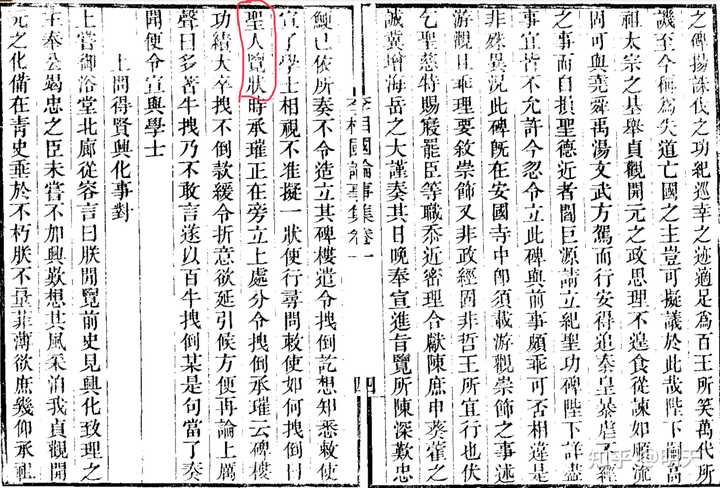 之碑揚誅伐之功紀巡幸之迹適足為百王所笑萬代所
譏至今稱為失道亡國之主豈可擬議於此哉陛下嗣高
祖太宗之基舉貞觀開元之政思理不遑食從諫如順流
固可與堯舜禹湯文武方駕而行安得追秦皇暴虐不經
之事而自損聖德近者閻巨源請立紀聖功碑陛下詳盡
事宜皆不允許今忽令立此碑與前事頗乖可否相違是
非殊異況此碑旣在安國寺中卽須載游觀崇飾之事述
游觀且乖理要敘崇飾又非政經固非哲王所宜行也伏
乞聖慈特賜寢罷臣等職忝近密理合獻陳庶申葵藿之
誠冀增海岳之大謹奏其日晚奉宣進旨覽所陳深歎忠
李相國論事集卷一 四
鯁已依所奏不令造立其碑樓遣令拽倒訖想知悉敕使
宣了學士相視不准擬一狀便行尋問敕使如何拽倒曰
聖人覽狀時承璀正在旁立上處分令拽倒承璀云碑樓
功績大卒拽不倒款緩令折意欲延引候方便再論上厲
聲曰多著牛拽乃不敢言遂以百牛拽倒某是句當了奏
聞便令宣與學士
上問得賢興化事對
上嘗御浴堂北廊從容言曰朕閒覽前史見興化致理之
主奉公竭忠之臣未嘗不加興歎想其風采洎我貞觀開
元之化備在青史垂於不朽朕不量菲薄欲庶幾仰承祖
知乎